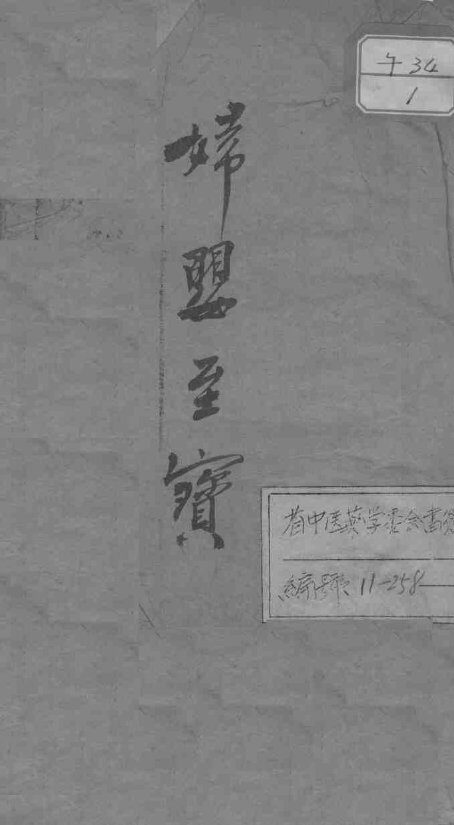 午34
1
婦嬰至寶
省中医药学委会書
編號 11-258